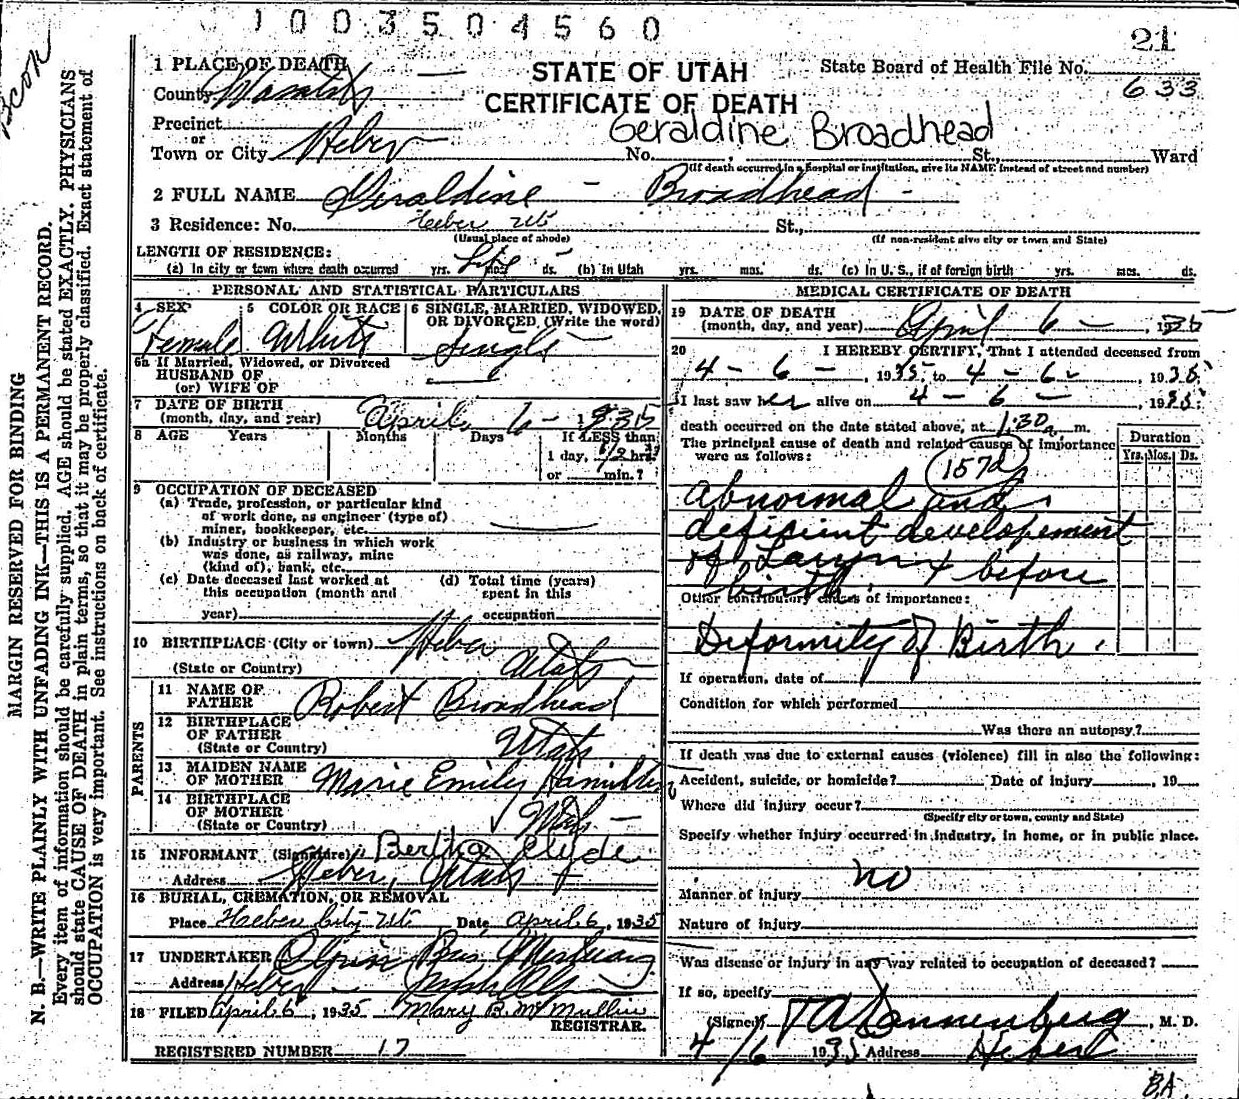 1003504560
21
1 PLACE OF DEATH
County Wasatch
STATE OF UTAH
CERTIFICATE OF DEATH
State Board of Health File No.
633
Precinct
or
Town or City Heber
Geraldine Broadhead
No. , St., Ward
(If death occurred in a hospital or institution, give its NAME instead of street and number)
2 FULL NAME Geraldine - Broadhead -
3 Residence: No. Heber Ut St.,
(Usual place of abode)
(If non-resident give city or town and State)
LENGTH OF RESIDENCE:
(a) In city or town where death occurred yrs. Life mos. ds. (b) In Utah yrs. mos. ds. (c) In U. S., if of foreign birth yrs. mos. ds.
PERSONAL AND STATISTICAL PARTICULARS
4 SEX Female
5 COLOR OR RACE White
6 SINGLE, MARRIED, WIDOWED, OR DIVORCED, (Write the word) Single
6a If Married, Widowed, or Divorced
HUSBAND OF
(or) WIFE OF
7 DATE OF BIRTH
(month, day, and year) April 6 - 1935
8 AGE Years Months Days If LESS than
1 day, 1/2 hrs.
or min.?
9 OCCUPATION OF DECEASED
(a) Trade, profession, or particular kind
of work done, as engineer (type of)
miner, bookkeeper, etc.
(b) Industry or business in which work
was done, as railway, mine
(kind of), bank, etc.
(c) Date deceased last worked at
this occupation (month and
year)
(d) Total time (years)
spent in this
occupation
10 BIRTHPLACE (City or town) Heber
(State or Country) Utah
PARENTS
11 NAME OF
FATHER Robert Broadhead
12 BIRTHPLACE
OF FATHER
(State or Country) Utah
13 MAIDEN NAME
OF MOTHER Marie Emily
14 BIRTHPLACE
OF MOTHER
(State or Country)
15 INFORMANT (Signature) Bertha Clyde
Address Heber, Utah
16 BURIAL, CREMATION, OR REMOVAL
Place Heber City Ut Date April 6, 1935
17 UNDERTAKER Olpin Bros Mortuary
Address Heber
18 FILED April 6, 1935 Mary B. McMullin
REGISTRAR.
REGISTERED NUMBER 17
MEDICAL CERTIFICATE OF DEATH
19 DATE OF DEATH
(month, day, and year) April 6 - , 1935
20 I HEREBY CERTIFY, That I attended deceased from
4 - 6 - , 1935 to 4 - 6 - , 1935
I last saw her alive on 4 - 6 - , 1935
death occurred on the date stated above, at 1:30 a. m.
The principal cause of death and related causes of importance
were as follows:
Duration
Yrs. Mos. Ds.
157a
abnormal and
deficient developement
of Larynx before
birth
Other contributory causes of importance:
Deformity of Birth.
If operation, date of
Condition for which performed
Was there an autopsy?
If death was due to external causes (violence) fill in also the following:
Accident, suicide, or homicide? Date of injury , 19
Where did injury occur?
(Specify city or town, county and State)
Specify whether injury occurred in industry, in home, or in public place.
no
Manner of injury
Nature of injury
Was disease or injury in any way related to occupation of deceased?
If so, specify
(Signed) T A Dannenberg, M. D.
4/6 1935 Address Heber
B.A.
MARGIN RESERVED FOR BINDING
N. B.—WRITE PLAINLY WITH UNFADING INK—THIS IS A PERMANENT RECORD.
Every item of information should be carefully supplied. AGE should be stated EXACTLY. PHYSICIANS
should state CAUSE OF DEATH in plain terms, so that it may be properly classified. Exact statement of
OCCUPATION is very important. See instructions on back of certificate.